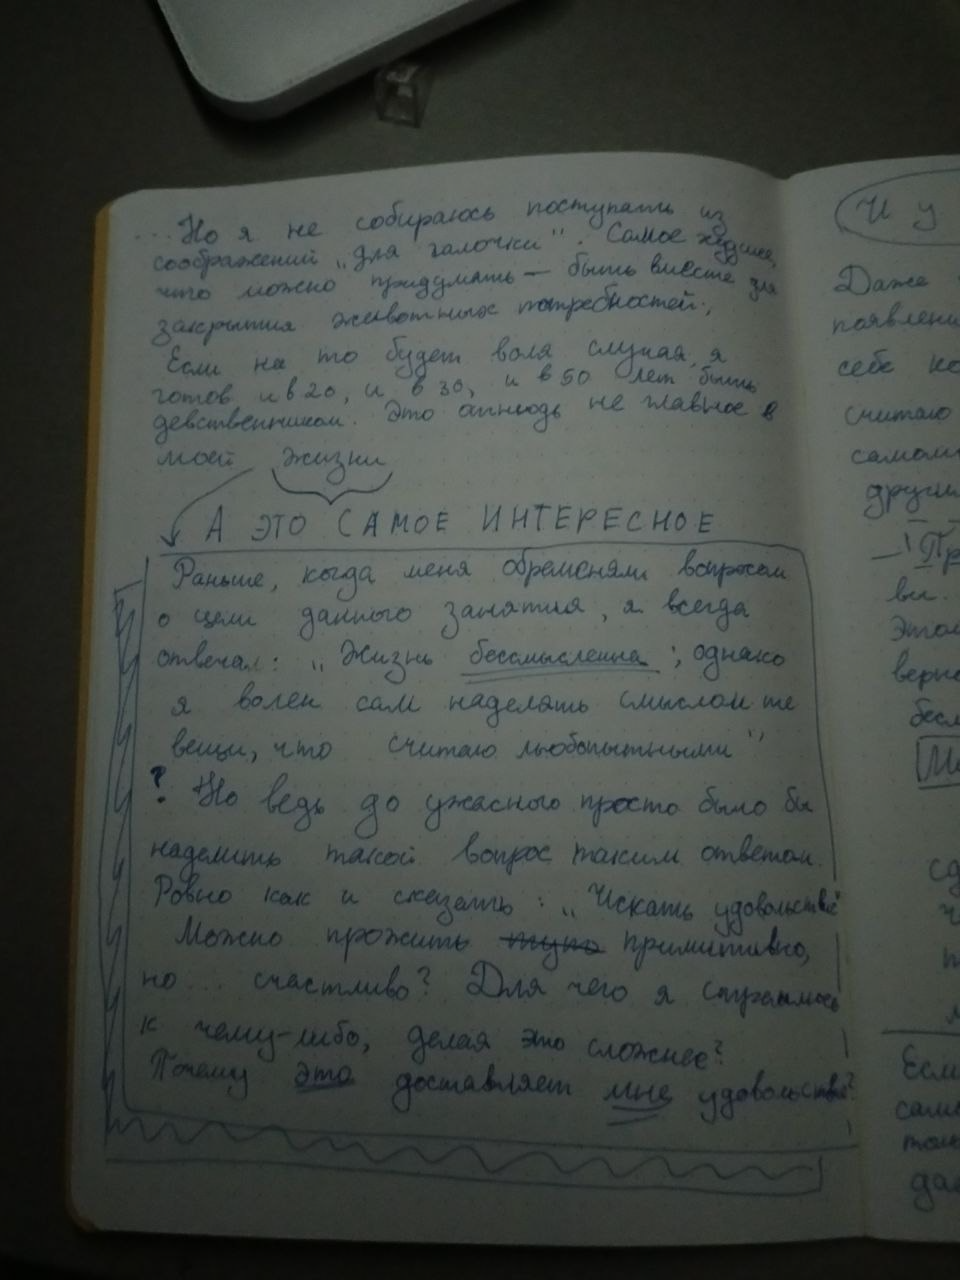 ...Но я не собираюсь поступать из
соображений „для галочки". Самое худшее,
что можно придумать — быть вместе для
закрытия животных потребностей;
Если на то будет воля случая, я
готов и в 20, и в 30, и в 50 лет быть
девственником. Это отнюдь не главное в
моей жизни
А ЭТО САМОЕ ИНТЕРЕСНОЕ
Раньше, когда меня обременяли вопросом
о цели данного занятия, я всегда
отвечал: „Жизнь бессмысленна; однако
я волен сам наделять смыслом те
вещи, что считаю любопытными"
? Но ведь до ужасного просто было бы
наделить такой вопрос таким ответом.
Ровно как и сказать: „Искать удовольствие
Можно прожить тупо примитивно,
но... счастливо? Для чего я стремлюсь
к чему-либо, делая это сложнее?
Почему это доставляет мне удовольствие?
И у
Даже
появлени
себе ко
считаю
самом
други
— Пр
вы.
Этом
верно
бесм
Мо
сд
ч
п
м
Если
само
толь
дав